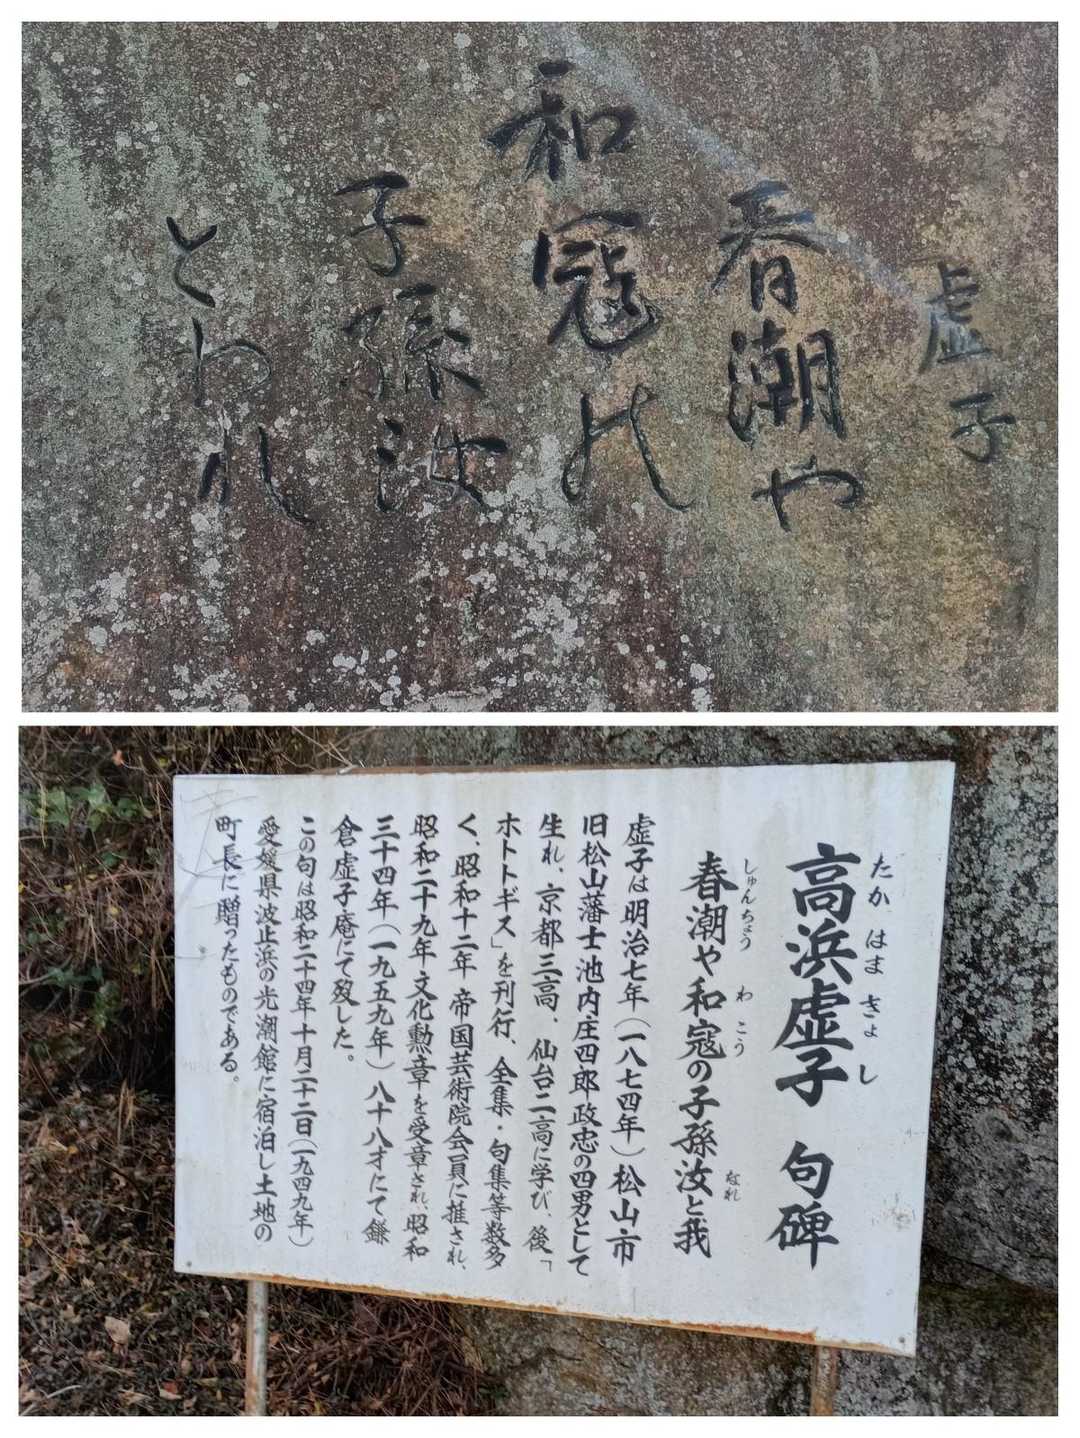 虚子
春潮や
和寇の
子孫汝
とわれ
高浜虚子 句碑
たかはまきよし
春潮や和寇の子孫汝と我
しゅんちょう わこう なれ
虚子は明治七年(一八七四年)松山市
旧松山藩士池内庄四郎政忠の四男として
生れ、京都三高、仙台二高に学び、後「
ホトトギス」を刊行、全集・句集等数多
く、昭和十二年 帝国芸術院会員に推され、
昭和二十九年文化勲章を受章され、昭和
三十四年(一九五九年)八十八才にて鎌
倉虚子庵にて歿した。
この句は昭和二十四年十月二十二日(一九四九年)
愛媛県波止浜の光潮館に宿泊し土地の
町長に贈ったものである。